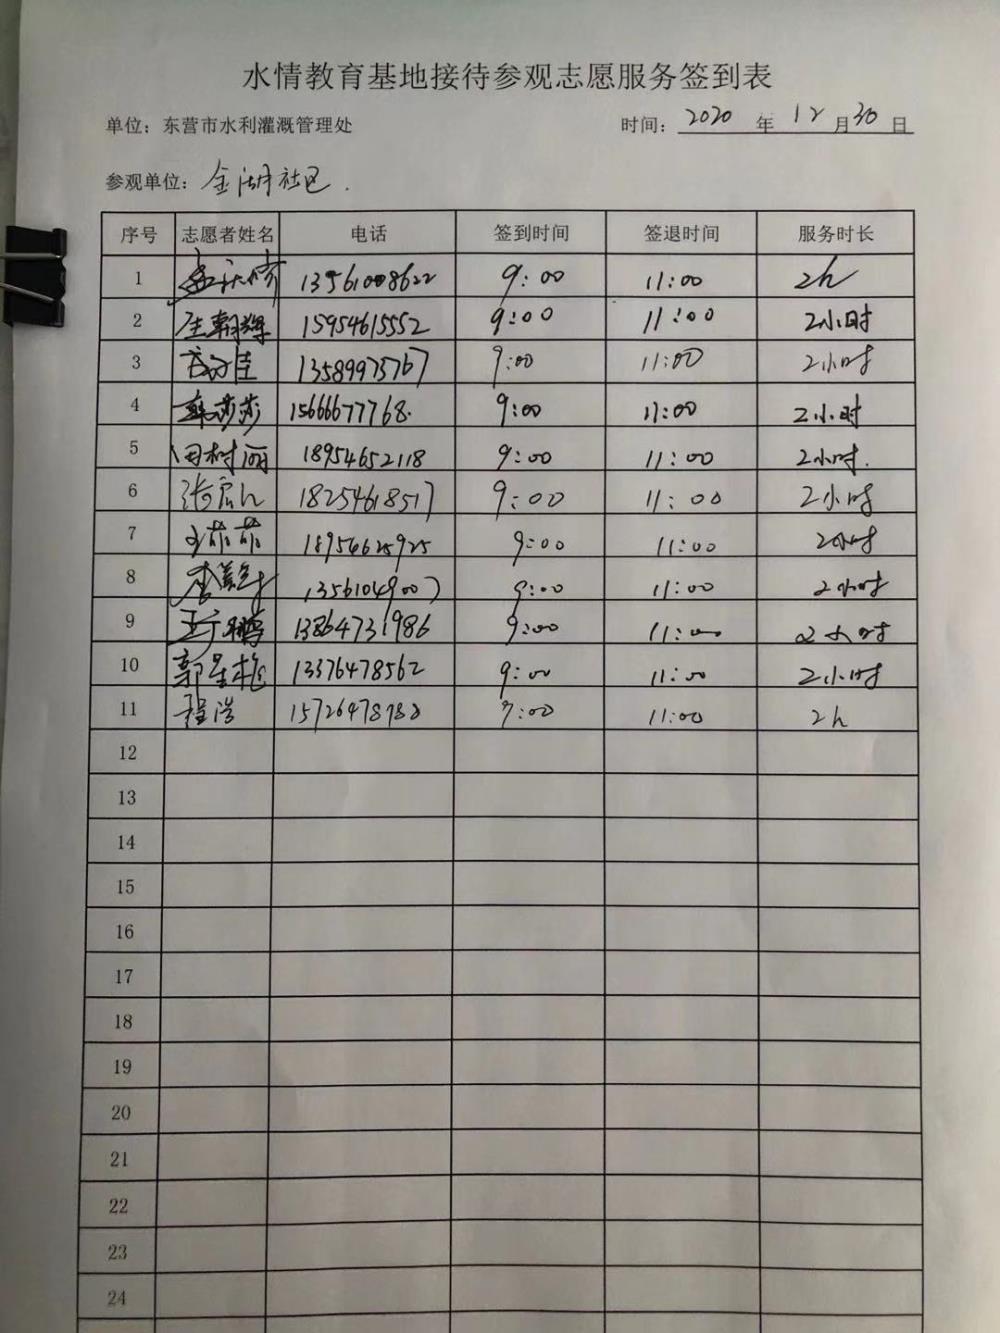 水情教育基地接待参观志愿服务签到表
单位：东营市水利灌溉管理处 时间：2020 年 12 月 30 日
参观单位：金湖社区.
序号 志愿者姓名 电话 签到时间 签退时间 服务时长
1 13561008622 9:00 11:00 2h
2 庄朝辉 15954615552 9:00 11:00 2小时
3 13589975767 9:00 11:00 2小时
4 韩莎莎 15666677768. 9:00 11:00 2小时
5 田树丽 18954652118 9:00 11:00 2小时.
6 18254618517 9:00 11:00 2小时
7 王萌萌 18954625925 9:00 11:00 2小时
8 13561049007 9:00 11:00 2小时
9 13864731986 9:00 11:00 2小时
10 郭星艳 13376478562 9:00 11:00 2小时
11 程浩 9:00 11:00 2h
12
13
14
15
16
17
18
19
20
21
22
23
24